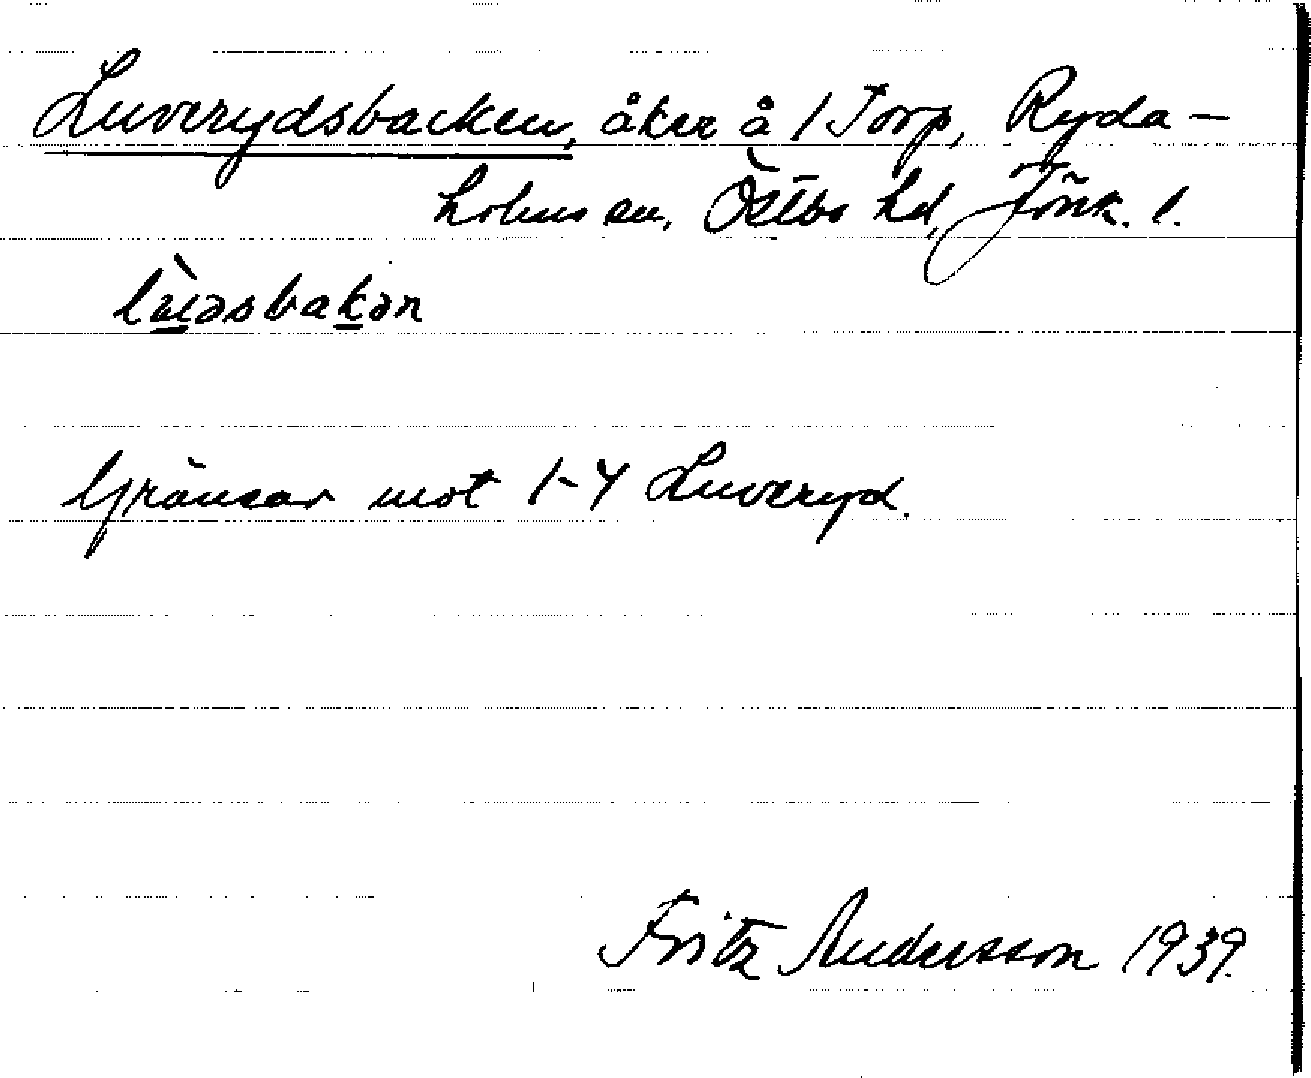 Luverydsbacken, åker å 1 Torp, Ryda-
holms sn, Östbo hd, Jönk. l.
Gränsar mot 1-4 Luveryd.
Fritz Andersson 1939.